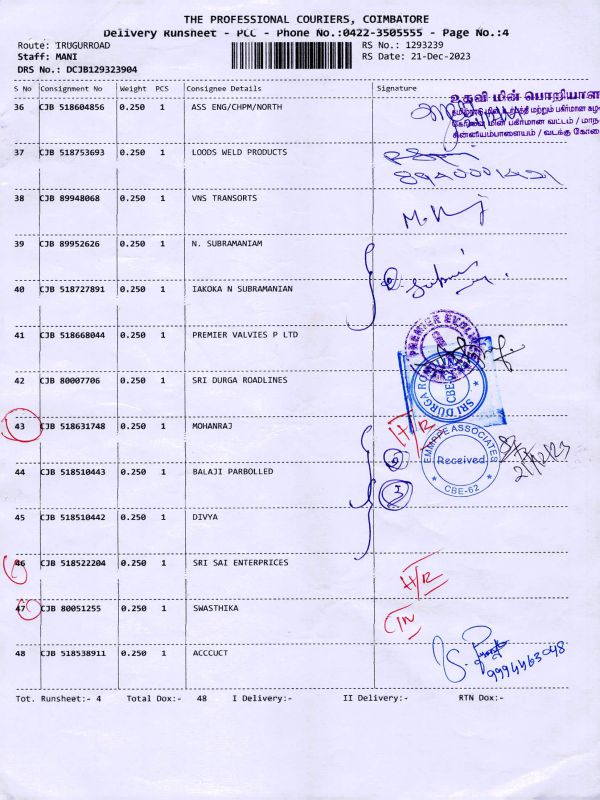 THE PROFESSIONAL COURIERS, COIMBATORE
Delivery Runsheet - PCC - Phone No.:0422-3505555 - Page No.:4
Route: IRUGURROAD RS No.: 1293239
Staff: MANI RS Date: 21-Dec-2023
DRS No.: DCJB129323904
S No Consignment No Weight PCS Consignee Details Signature
உதவி மின் பொறியாள
36 CJB 518604856 0.250 1 ASS ENG/CHPM/NORTH
37 CJB 518753693 0.250 1 LOODS WELD PRODUCTS
38 CJB 89948068 0.250 1 VNS TRANSORTS
39 CJB 89952626 0.250 1 N. SUBRAMANIAM
40 CJB 518727891 0.250 1 IAKOKA N SUBRAMANIAN
41 CJB 518668044 0.250 1 PREMIER VALVIES P LTD
42 CJB 80007706 0.250 1 SRI DURGA ROADLINES
SRI DURGA
43 CJB 518631748 0.250 1 MOHANRAJ H/R
EMMRPE ASSOCIATES
Received
CBE-62
21/12/23
44 CJB 518510443 0.250 1 BALAJI PARBOLLED
3
45 CJB 518510442 0.250 1 DIVYA
46 CJB 518522204 0.250 1 SRI SAI ENTERPRICES
H/R
47 CJB 80051255 0.250 1 SWASTHIKA
48 CJB 538538911 0.250 1 ACCCUCT
9994463048
Tot. Runsheet:- 4 Total Dox:- 48 I Delivery:- II Delivery:- RTN Dox:-